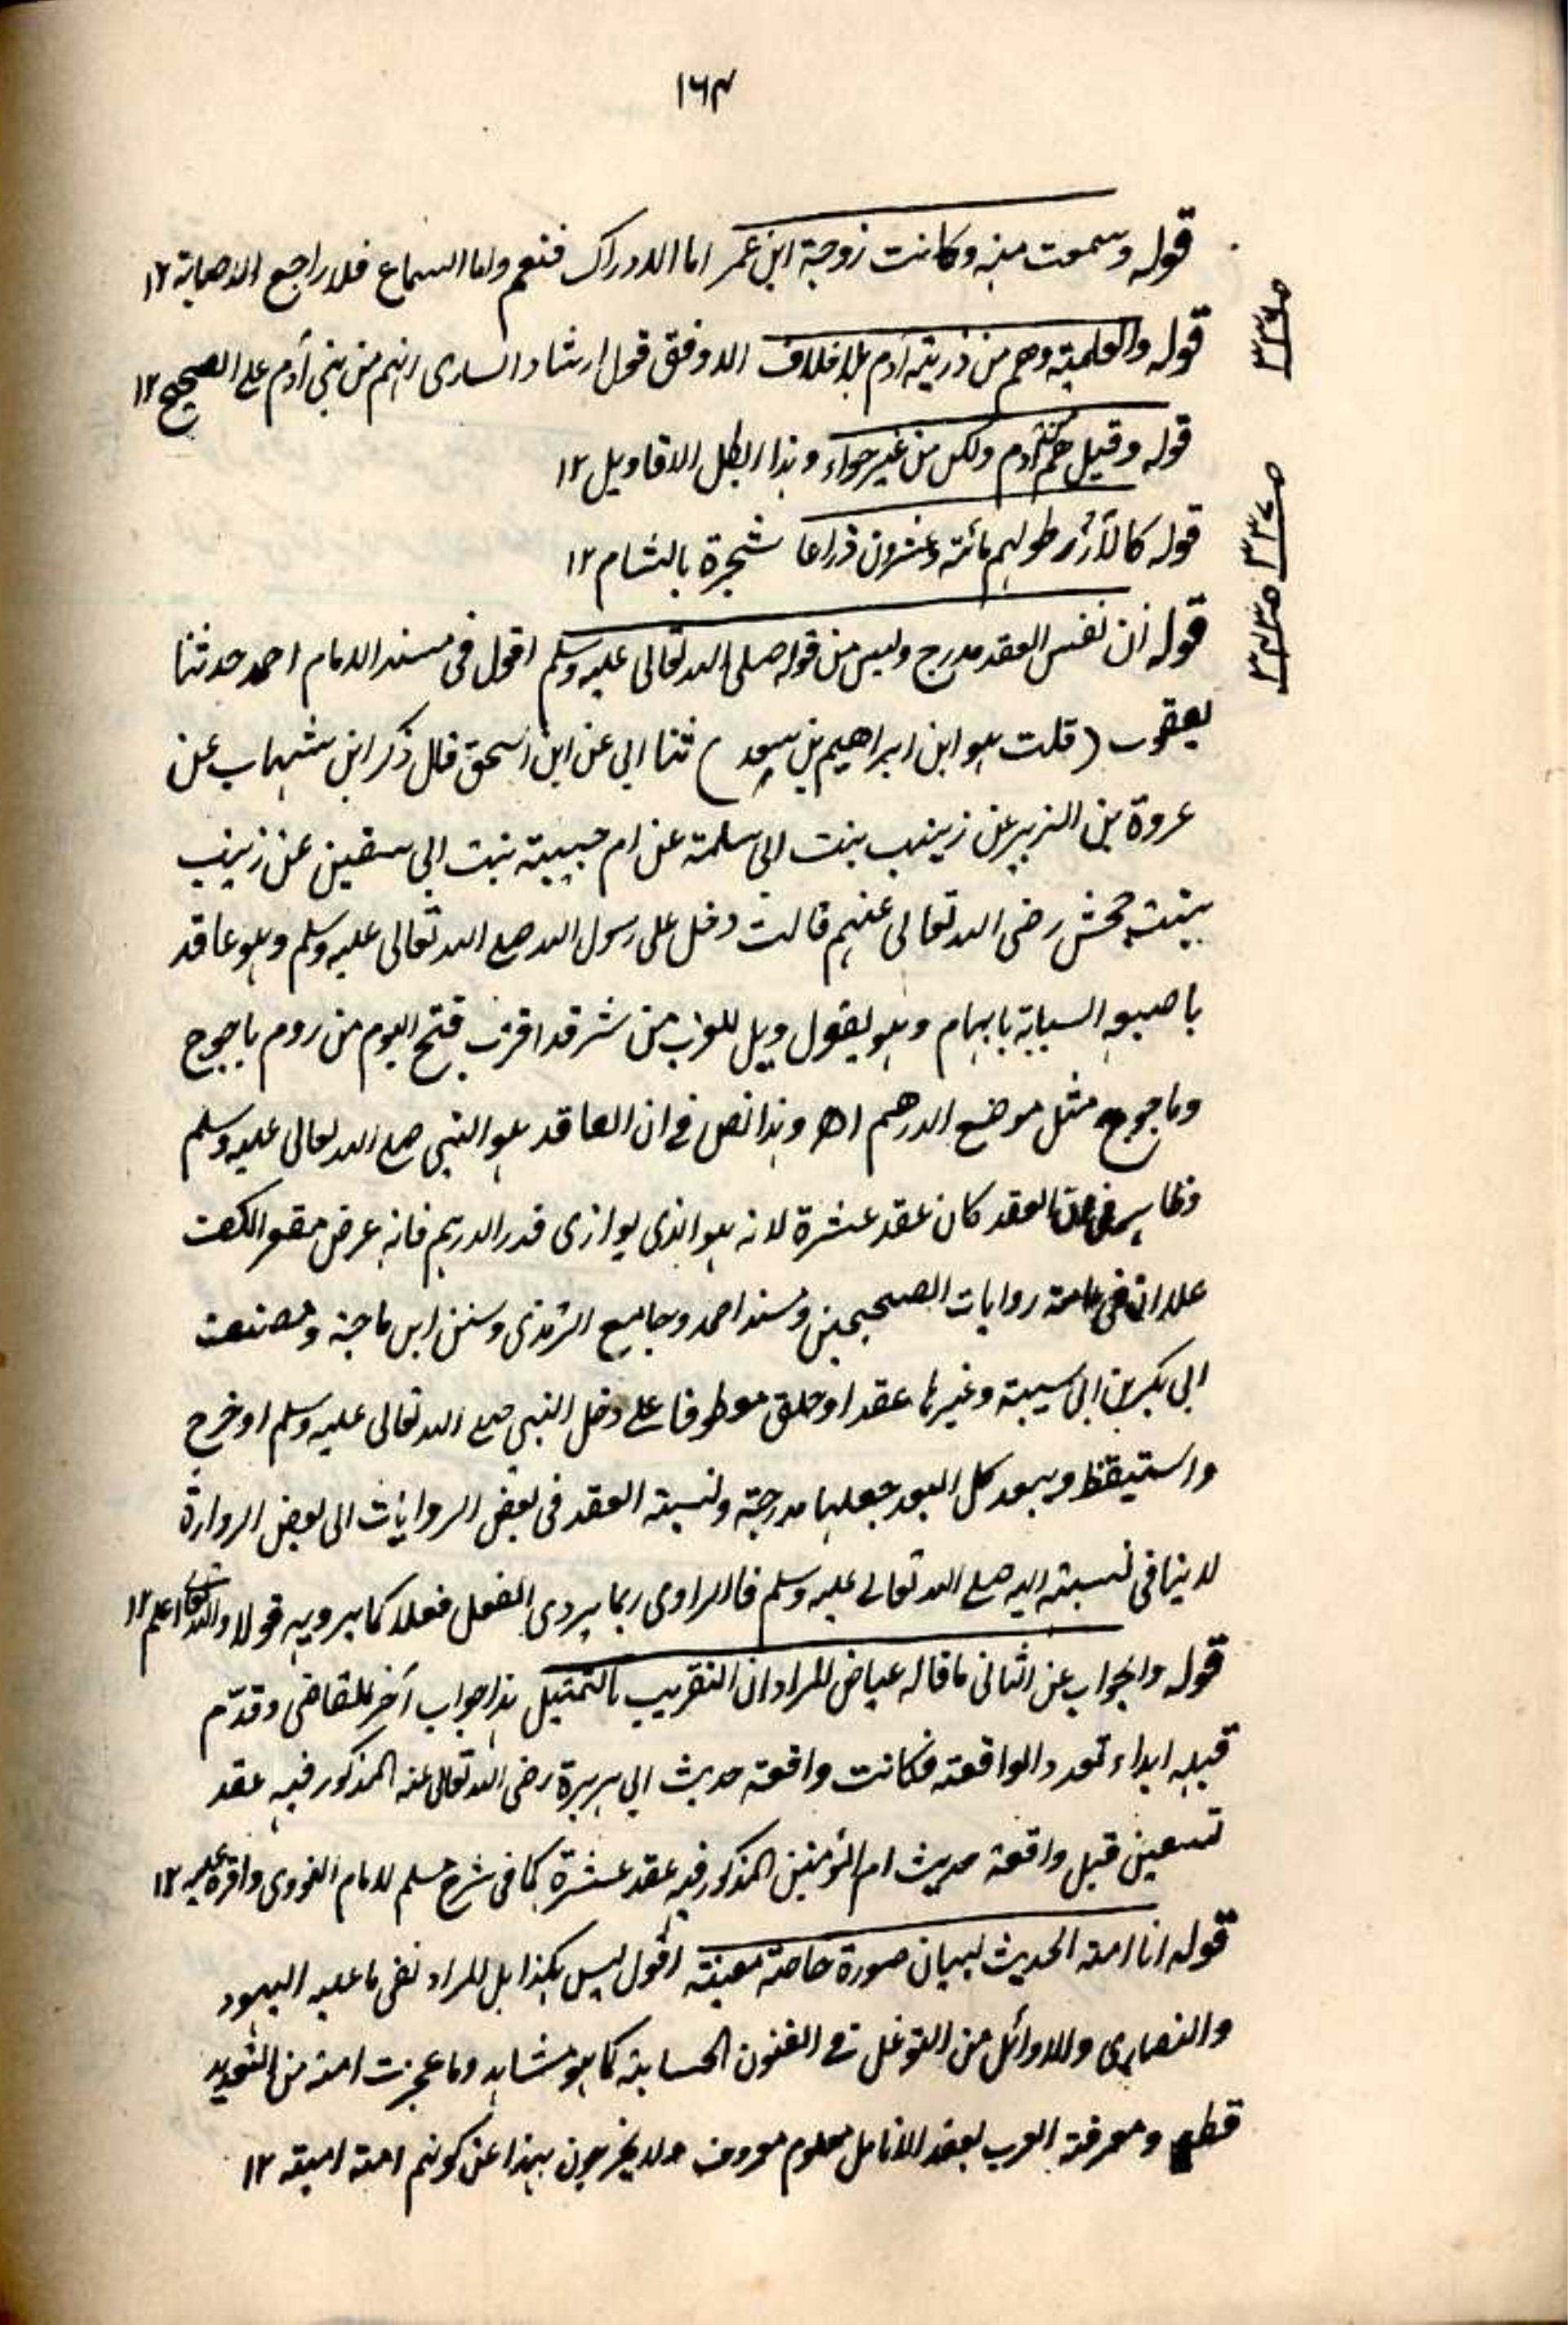 ١٦٣
قوله وسمعت منه وكانت زوجة ابن عمر اما الادراك فنعم واما السماع فلا راجع الاصابة ١٢
قوله والعلمية وهم من ذرية آدم بلا خلاف الاوفق قول ارشاد الساری انهم من بنی آدم علی الصحیح ١٢
قوله وقيل هم من آدم ولكن من غير حواء وهذا ابطل الاقاويل ١٢
قوله كالأرز طولهم مائة وعشرون ذراعا شجرة بالشام ١٢
قوله ان نفس العقد مدرج وليس من قوله صلى الله تعالى عليه وسلم اقول فی مسند الامام احمد حدثنا
يعقوب (قلت هو ابن ابراهيم بن سعد) ثنا ابی عن ابن اسحق قال ذكر ابن شهاب عن
عروة بن الزبير عن زينب بنت ابی سلمة عن ام حبيبة بنت ابی سفين عن زينب
بنت جحش رضی الله تعالى عنهم قالت دخل علی رسول الله صلے الله تعالى عليه وسلم وهو عاقد
باصبعيه السبابة بابهام وهو يقول ويل للعرب من شر قد اقترب فتح اليوم من روم ياجوج
وماجوج مثل موضع الدرهم اهـ وهذا نص فے ان العاقد هو النبی صلے الله تعالى عليه وسلم
وظاهر فی ان العقد كان عقد عشرة لانه هو الذی يوازی قدر الدرهم فانه عرض مقعر الكف
علا ان فی عامة روايات الصحيحين ومسند احمد وجامع الترمذی وسنن ابن ماجة ومصنف
ابی بكر بن ابی شيبة وغيرها عقد او حلق معطوفا علے دخل النبی صلے الله تعالى عليه وسلم او خرج
واستيقظ ويبعد كل البعد جعلها مدرجة ونسبة العقد فی بعض الروايات الی بعض الرواة
لا ينافی نسبته اليه صلے الله تعالى عليه وسلم فالراوی ربما يروی الفعل فعلا كما يرويه قولا والله تعالى اعلم ١٢
قوله والجواب عن الثانی ما قاله عياض المراد ان التقريب بالتمثيل هذا جواب آخر للقاضی وقدّم
قبله ابداء تعدد الواقعة فكانت واقعة حديث ابی هريرة رضی الله تعالى عنه المذكور فيه عقد
تسعين قبل واقعة حديث ام المؤمنين المذكور فيه عقد عشرة كما فی شرح مسلم للامام النووی واقره عليه ١٢
قوله انا امة الحديث لبيان صورة خاصة معينة اقول ليس هكذا بل المراد نفی ما عليه اليهود
والنصاری والاوائل من التوغل فے الفنون الحسابية كما هو مشاهد وما عجزت امة من التعديد
قطع ومعرفة العرب بعقد الانامل معلوم معروف ولا يخرجون بهذا عن كونهم امة امية ١٢